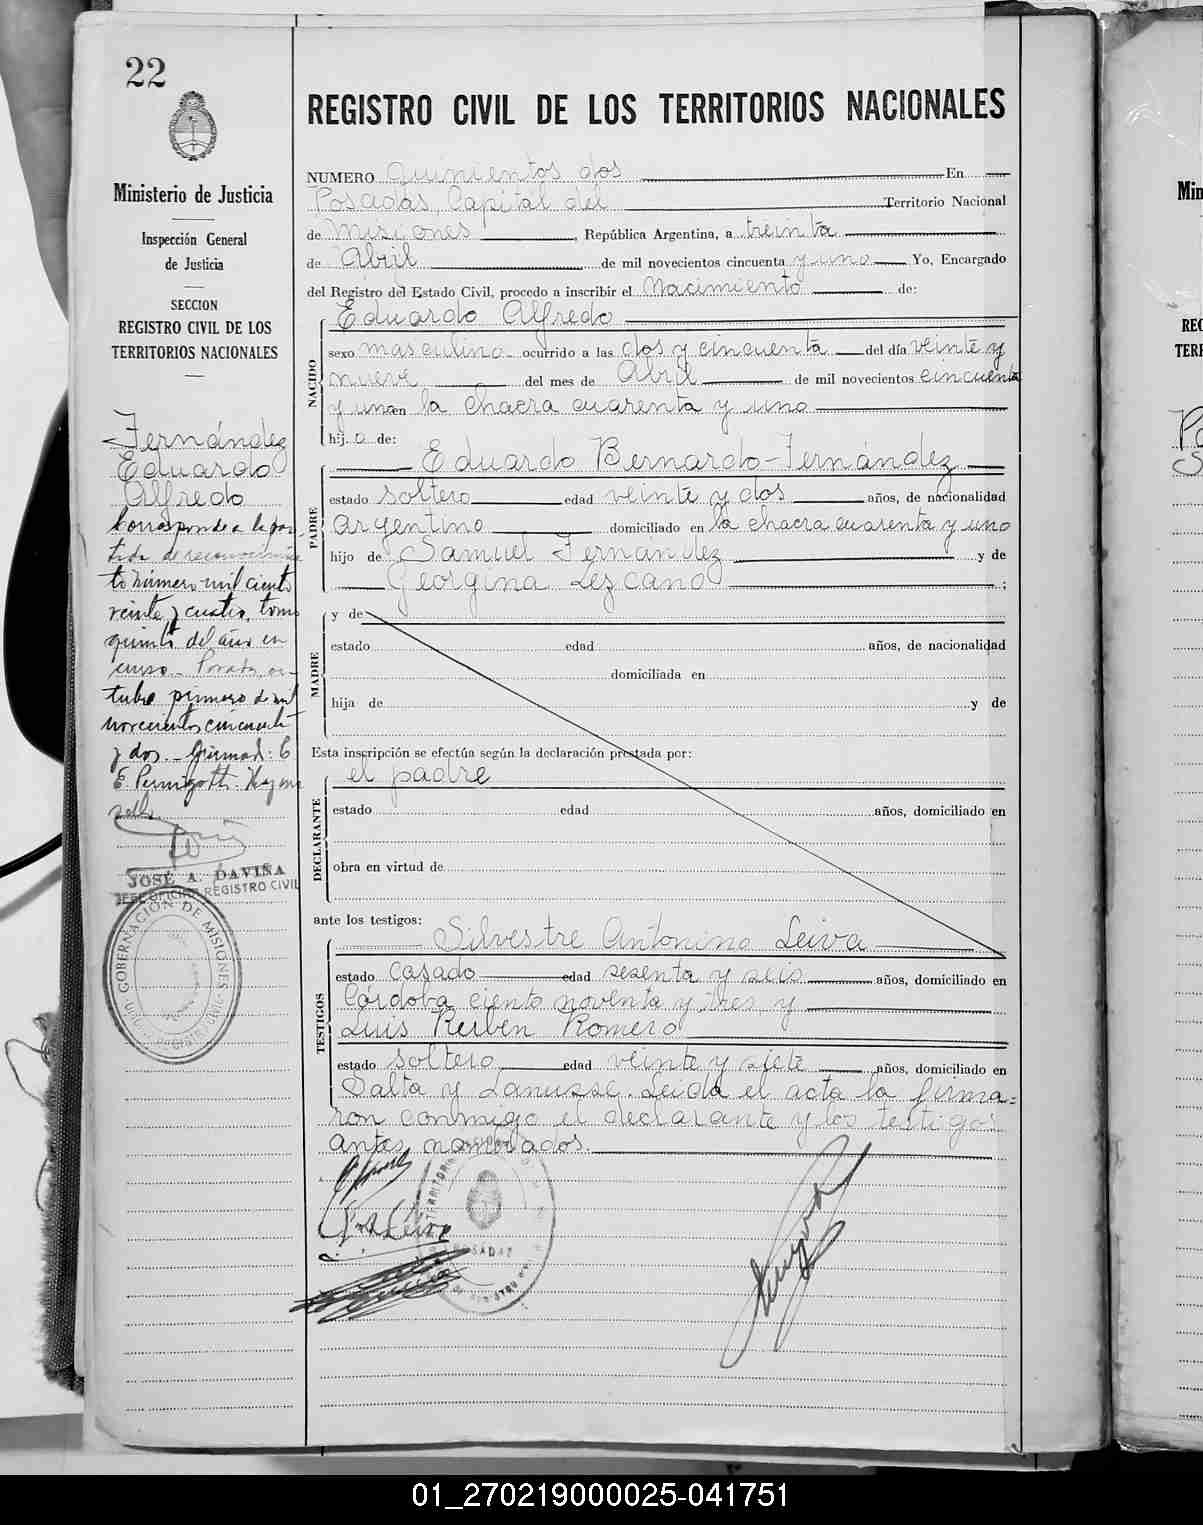 22
Ministerio de Justicia
Inspección General
de Justicia
SECCION
REGISTRO CIVIL DE LOS
TERRITORIOS NACIONALES
Fernández
Eduardo
Alfredo
Corresponde a la par-
tida de reconocimien
to número mil ciento
veinte y cuatro, tomo
quinto del año en
curso.- Posadas, oc-
tubre primero de mil
novecientos cincuenta
y dos.- Firmado: C
E. Hay un
sello.
JOSÉ A. DAVIÑA
JEFE OFICINA REGISTRO CIVIL
GOBERNACIÓN DE MISIONES
REGISTRO CIVIL DE LOS TERRITORIOS NACIONALES
NUMERO quinientos dos En
Posadas, Capital del Territorio Nacional
de Misiones, República Argentina, a treinta
de Abril de mil novecientos cincuenta y uno Yo, Encargado
del Registro del Estado Civil, procedo a inscribir el Nacimiento de:
Eduardo Alfredo
NACIDO
sexo masculino ocurrido a las dos y cincuenta del día veinte y
nueve del mes de Abril de mil novecientos cincuenta
y uno en la chacra cuarenta y uno
hij o de:
Eduardo Bernardo Fernández
PADRE
estado soltero edad veinte y dos años, de nacionalidad
argentino domiciliado en la chacra cuarenta y uno
hijo de Samuel Fernández y de
Georgina Lezcano ;
y de
MADRE
estado edad años, de nacionalidad
domiciliada en
hija de y de
Esta inscripción se efectúa según la declaración prestada por:
el padre
DECLARANTE
estado edad años, domiciliado en
obra en virtud de
ante los testigos:
Silvestre Antonino Leiva
TESTIGOS
estado casado edad sesenta y seis años, domiciliado en
Córdoba ciento noventa y tres y
Luis Rubén Romero
estado soltero edad veinte y siete años, domiciliado en
Salta y Lanusse. Leida el acta la firma=
ron conmigo el declarante y los testigos
antes nombrados.
POSADAS
Min
REG
TERR
01_270219000025-041751